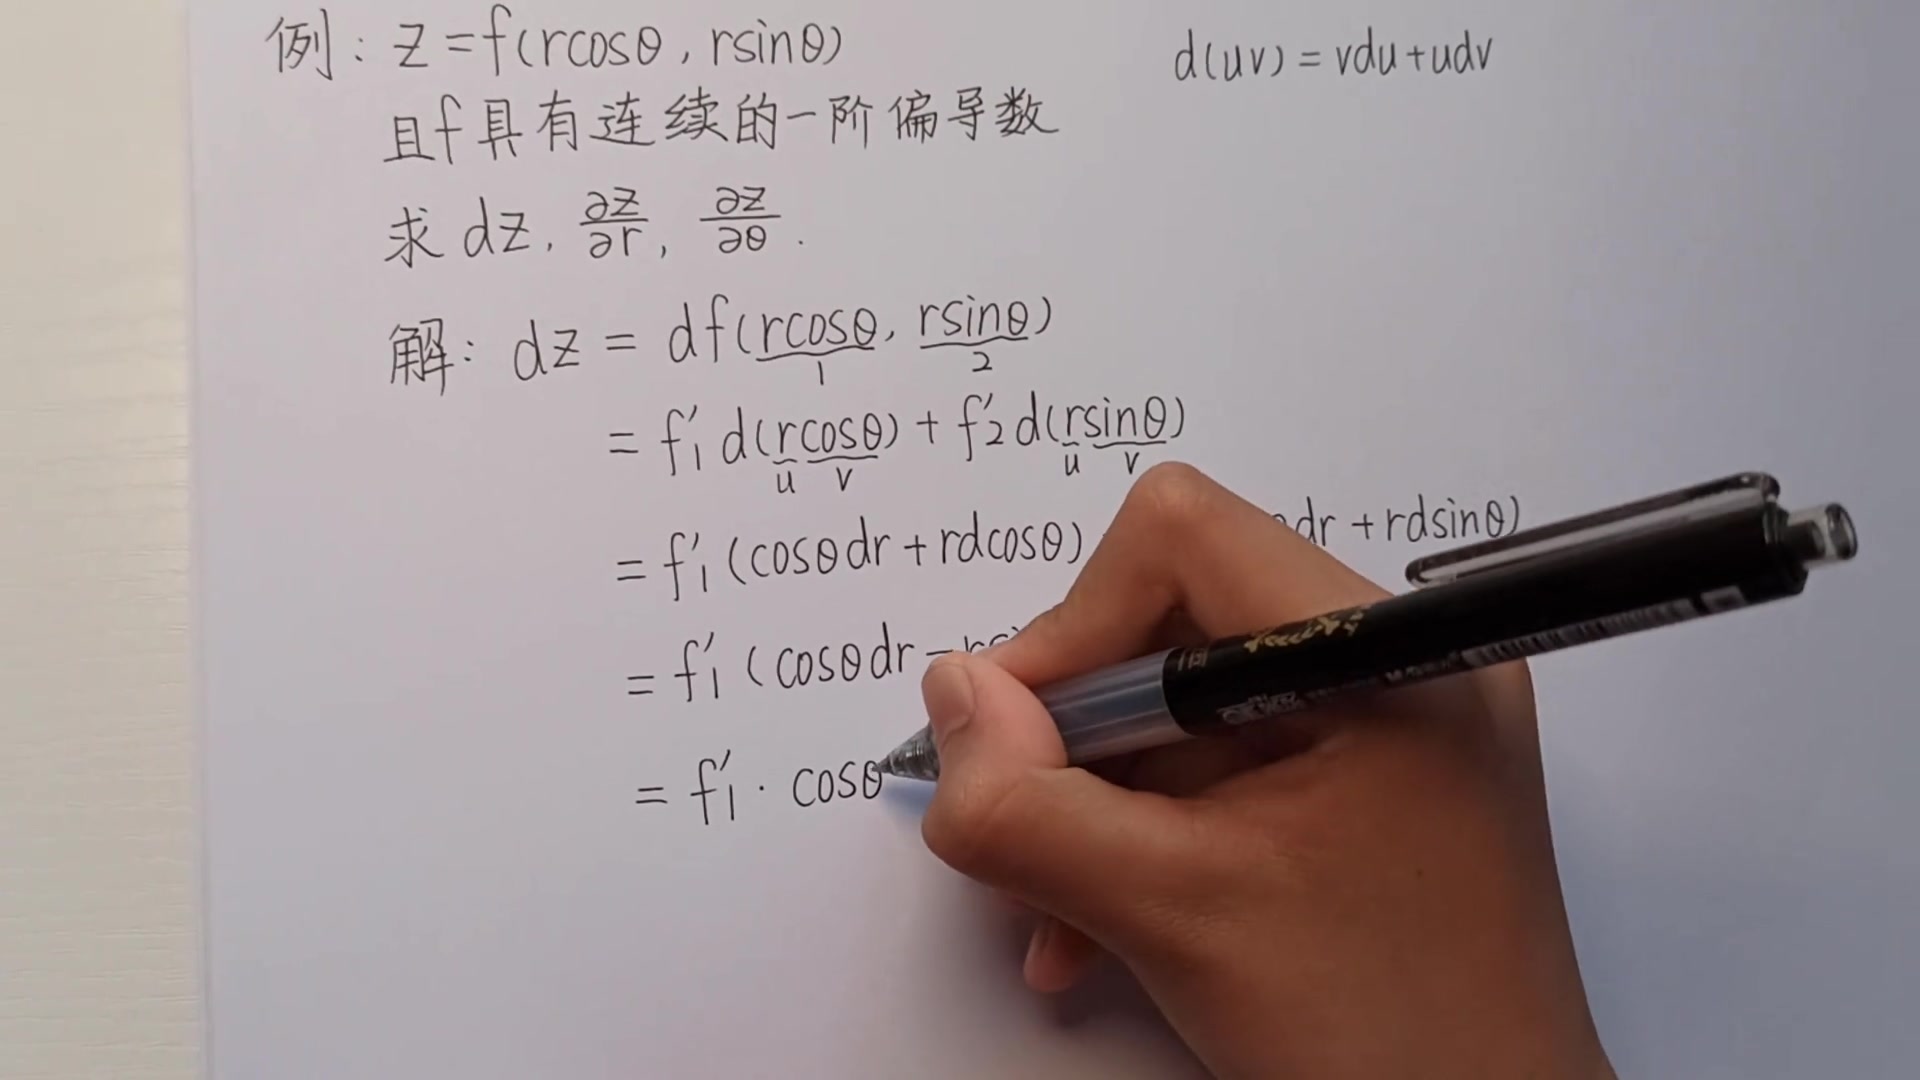 例: z=f(rcosθ, rsinθ)
d(uv)=vdu+udv
且f具有连续的一阶偏导数
求 dz, ∂z/∂r, ∂z/∂θ.
解: dz = df(rcosθ, rsinθ)
1 2
= f₁′d(rcosθ)+f₂′d(rsinθ)
u v u v
= f₁′(cosθdr+rdcosθ) dr+rdsinθ)
= f₁′(cosθdr-
= f₁′·cosθ